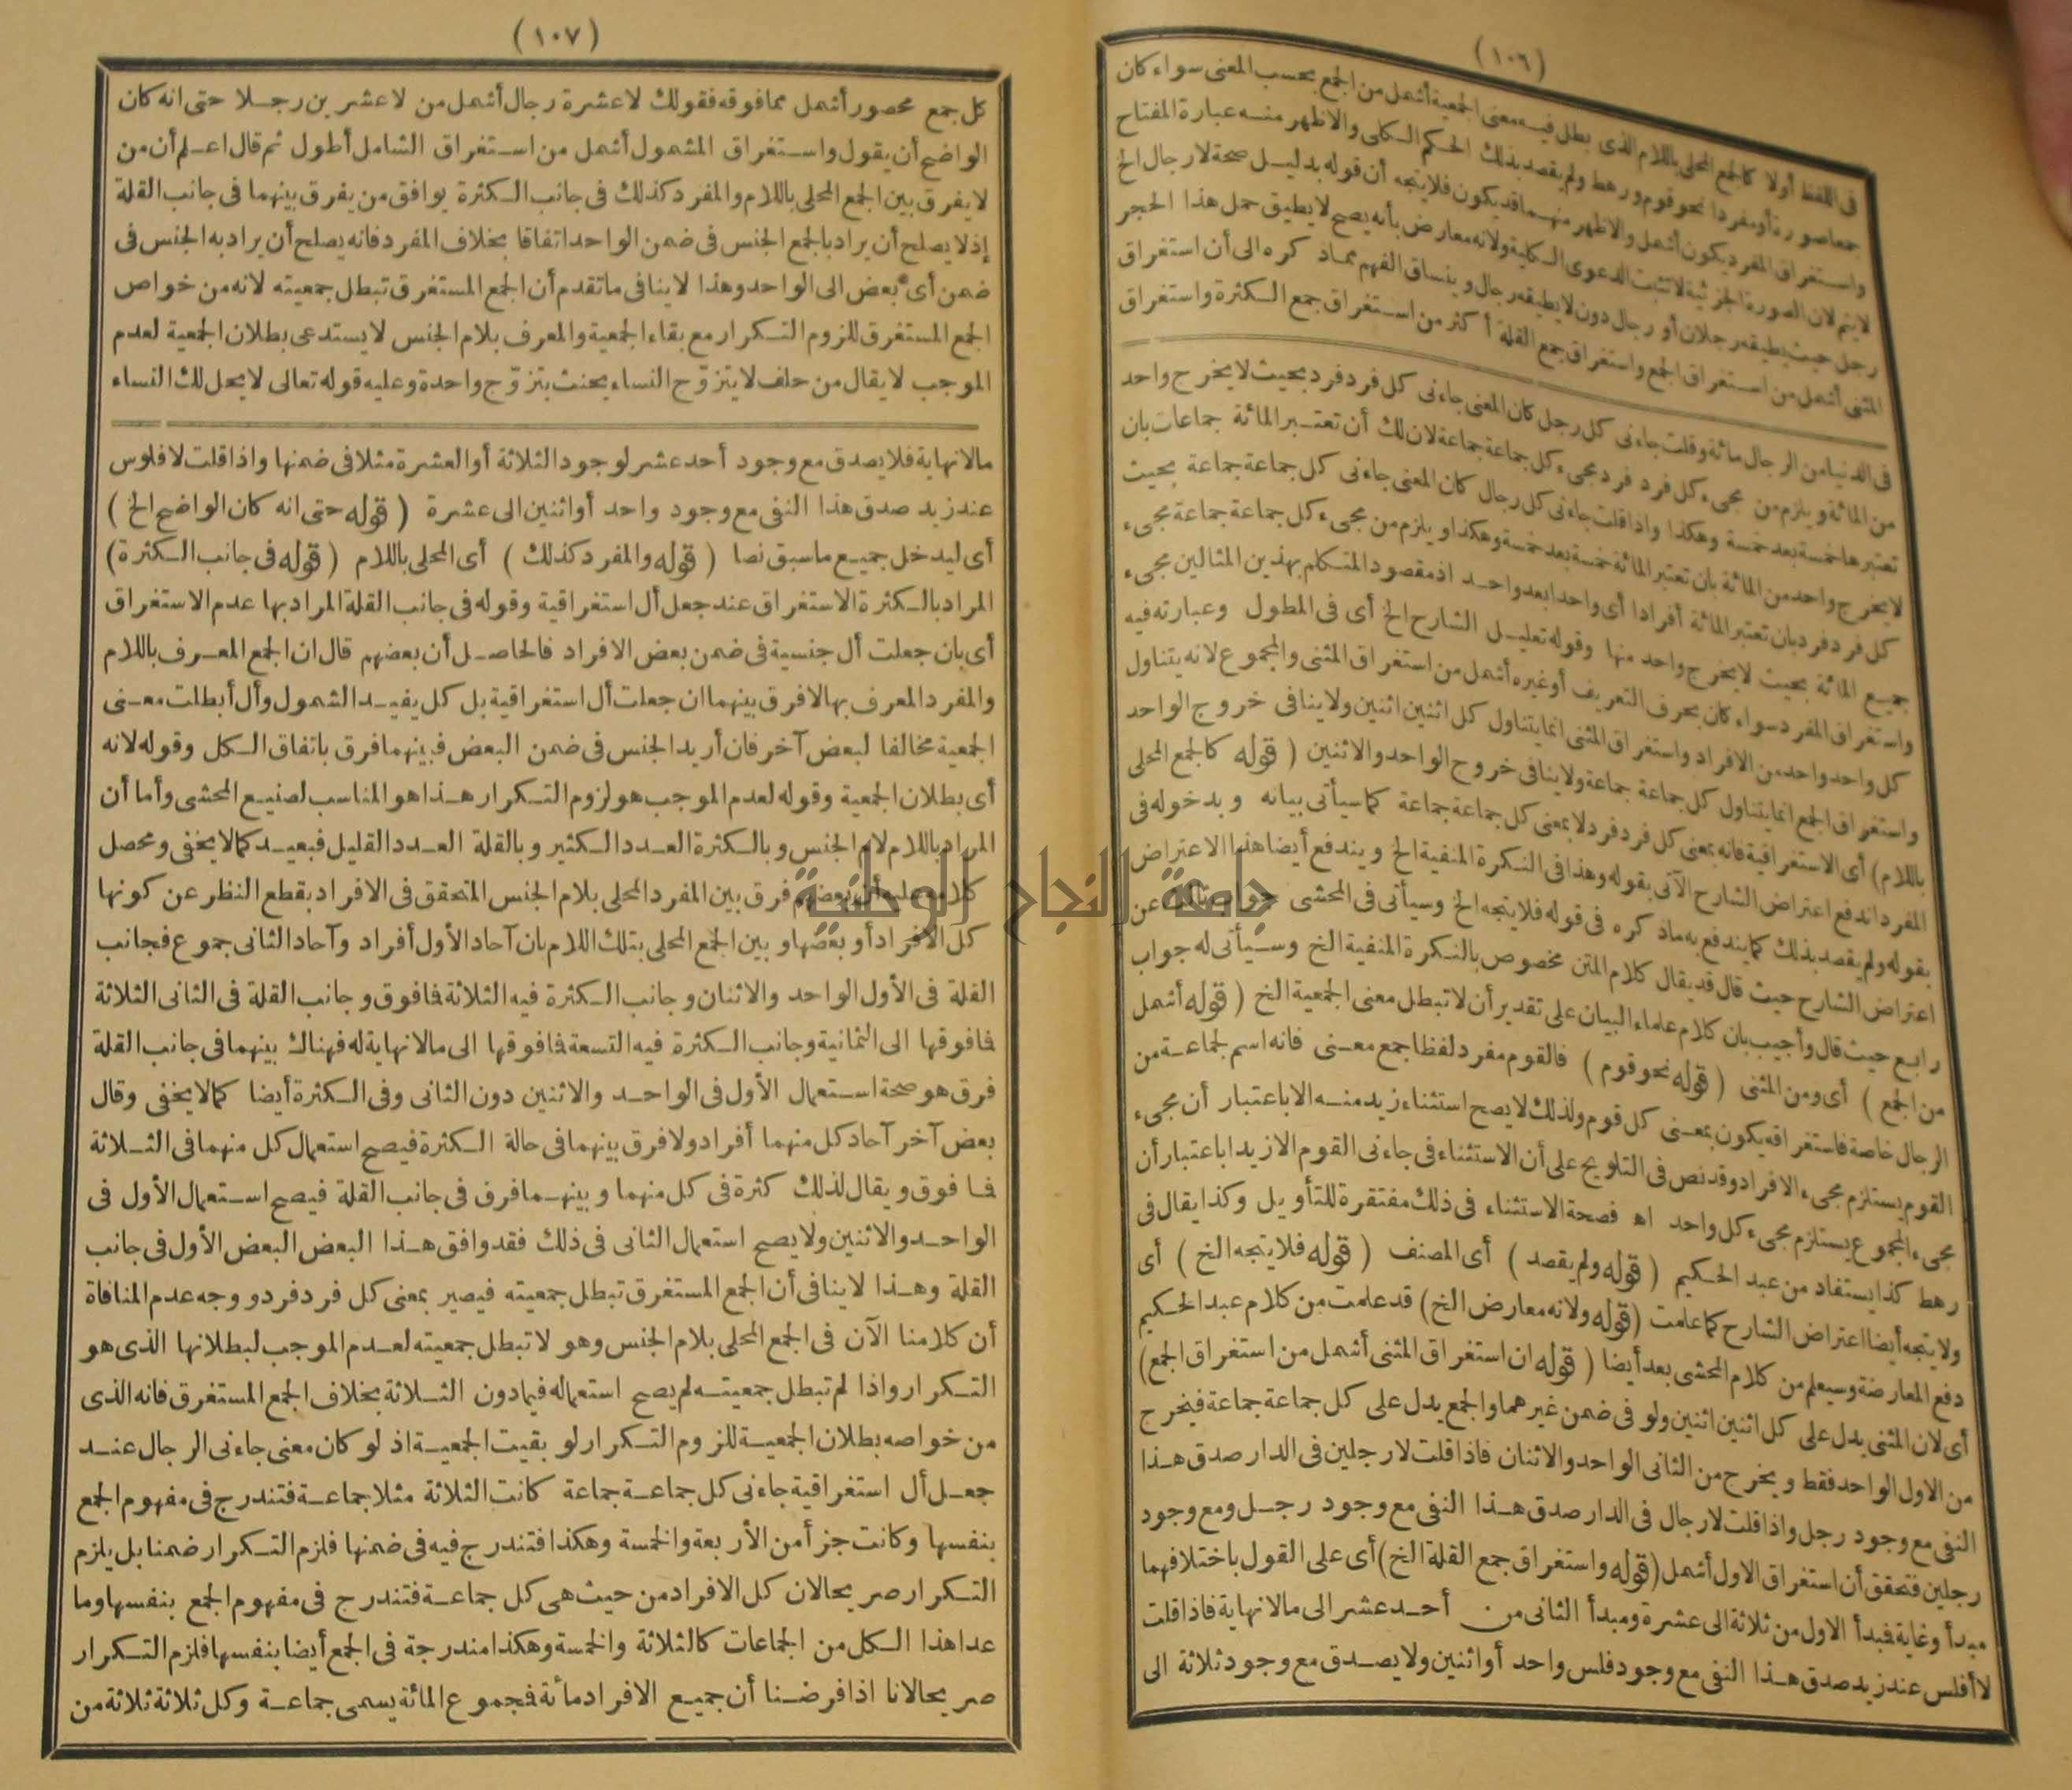 (١٠٦)
فى اللفظ أولا كالجمع المحلى باللام الذى بطل فيه معنى الجمعية أشمل من الجمع بحسب المعنى سواء كان
جمعا صورة أو مفردا نحو قوم ورهط ولم يقصد بذلك الحكم الكلى والاظهر منه عبارة المفتاح
واستغراق المفرد يكون أشمل والاظهر منهما قد يكون فلا يتجه أن قوله بدليل صحة لا رجال الخ
لا يتم لان الصورة الجزئية لا تثبت الدعوى الكلية ولانه معارض بأنه يصح لا يطيق حمل هذا الحجر
رجل حيث يطيقه رجلان أو رجال دون لا يطيقه رجال وينساق الفهم مما ذكره الى أن استغراق
المثنى أشمل من استغراق الجمع واستغراق جمع القلة أكثر من استغراق جمع الكثرة واستغراق
فى الدنيا من الرجال مائة وقلت جاءنى كل رجل كان المعنى جاءنى كل فرد فرد بحيث لا يخرج واحد
من المائة ويلزم من مجىء كل فرد فرد مجىء كل جماعة جماعة لان لك أن تعتبر المائة جماعات بان
تعتبرها خمسة بعد خمسة وهكذا واذا قلت جاءنى كل رجال كان المعنى جاءنى كل جماعة جماعة بحيث
لا يخرج واحد من المائة بان تعتبر المائة خمسة بعد خمسة وهكذا ويلزم من مجىء كل جماعة جماعة مجىء
كل فرد فرد بان تعتبر المائة أفرادا أى واحدا بعد واحد اذ مقصود المتكلم بهذين المثالين مجىء
جميع المائة بحيث لا يخرج واحد منها وقوله تعليل الشارح الخ أى فى المطول وعبارته فيه
واستغراق المفرد سواء كان بحرف التعريف أو غيره أشمل من استغراق المثنى والمجموع لانه يتناول
كل واحد واحد من الافراد واستغراق المثنى انما يتناول كل اثنين اثنين ولا ينافى خروج الواحد
واستغراق الجمع انما يتناول كل جماعة جماعة ولا ينافى خروج الواحد والاثنين ( قوله كالجمع المحلى
باللام) أى الاستغراقية فانه بمعنى كل فرد فرد لا بمعنى كل جماعة جماعة كما سيأتى بيانه وبدخوله فى
المفرد اندفع اعتراض الشارح الآتى بقوله وهذا فى النكرة المنفية الخ ويندفع أيضا هذا الاعتراض
بقوله ولم يقصد بذلك كما يندفع به ما ذكره فى قوله فلا يتجه الخ وسيأتى فى المحشى جواب ثالث عن
اعتراض الشارح حيث قال قد يقال كلام المتن مخصوص بالنكرة المنفية الخ وسيأتى له جواب
رابع حيث قال وأجيب بان كلام علماء البيان على تقدير أن لا تبطل معنى الجمعية الخ ( قوله أشمل
من الجمع ) أى ومن المثنى ( قوله نحو قوم ) فالقوم مفرد لفظا جمع معنى فانه اسم لجماعة من
الرجال خاصة فاستغراقه يكون بمعنى كل قوم ولذلك لا يصح استثناء زيد منه الا باعتبار أن مجىء
القوم يستلزم مجىء الافراد وقد نص فى التلويح على أن الاستثناء فى جاءنى القوم الا زيدا باعتبار أن
مجىء المجموع يستلزم مجىء كل واحد اه فصحة الاستثناء فى ذلك مفتقرة للتأويل وكذا يقال فى
رهط كذا يستفاد من عبد الحكيم ( قوله ولم يقصد ) أى المصنف ( قوله فلا يتجه الخ ) أى
ولا يتجه أيضا اعتراض الشارح كما علمت (قوله ولانه معارض الخ) قد علمت من كلام عبد الحكيم
دفع المعارضة وسيعلم من كلام المحشى بعد أيضا ( قوله ان استغراق المثنى أشمل من استغراق الجمع)
أى لان المثنى يدل على كل اثنين اثنين ولو فى ضمن غيرهما والجمع يدل على كل جماعة جماعة فيخرج
من الاول الواحد فقط ويخرج من الثانى الواحد والاثنان فاذا قلت لا رجلين فى الدار صدق هذا
النفى مع وجود رجل واذا قلت لا رجال فى الدار صدق هذا النفى مع وجود رجل ومع وجود
رجلين فتحقق أن استغراق الاول أشمل (قوله واستغراق جمع القلة الخ) أى على القول باختلافهما
مبدأ وغاية فمبدأ الاول من ثلاثة الى عشرة ومبدأ الثانى من أحد عشر الى مالا نهاية فاذا قلت
لا أفلس عند زيد صدق هذا النفى مع وجود فلس واحد أو اثنين ولا يصدق مع وجود ثلاثة الى
(١٠٧)
كل جمع محصور أشمل مما فوقه فقولك لا عشرة رجال أشمل من لا عشرين رجلا حتى انه كان
الواضح أن يقول واستغراق المشمول أشمل من استغراق الشامل أطول ثم قال اعلم أن من
لا يفرق بين الجمع المحلى باللام والمفرد كذلك فى جانب الكثرة يوافق من يفرق بينهما فى جانب القلة
إذ لا يصلح أن يراد بالجمع الجنس فى ضمن الواحد اتفاقا بخلاف المفرد فانه يصلح أن يراد به الجنس فى
ضمن أى بعض الى الواحد وهذا لا ينافى ما تقدم أن الجمع المستغرق تبطل جمعيته لانه من خواص
الجمع المستغرق للزوم التكرار مع بقاء الجمعية والمعرف بلام الجنس لا يستدعى بطلان الجمعية لعدم
الموجب لا يقال من حلف لا يتزوّج النساء يحنث بتزوّج واحدة وعليه قوله تعالى لا يحل لك النساء
مالا نهاية فلا يصدق مع وجود أحد عشر لوجود الثلاثة أو العشرة مثلا فى ضمنها واذا قلت لا فلوس
عند زيد صدق هذا النفى مع وجود واحد أو اثنين الى عشرة ( قوله حتى انه كان الواضح الخ )
أى ليدخل جميع ما سبق نصا ( قوله والمفرد كذلك ) أى المحلى باللام ( قوله فى جانب الكثرة)
المراد بالكثرة الاستغراق عند جعل أل استغراقية وقوله فى جانب القلة المراد بها عدم الاستغراق
أى بان جعلت أل جنسية فى ضمن بعض الافراد فالحاصل أن بعضهم قال ان الجمع المعرف باللام
والمفرد المعرف بها لا فرق بينهما ان جعلت أل استغراقية بل كل يفيد الشمول وأل أبطلت معنى
الجمعية مخالفا لبعض آخر فان أريد الجنس فى ضمن البعض فبينهما فرق باتفاق الكل وقوله لانه
أى بطلان الجمعية وقوله لعدم الموجب هو لزوم التكرار هذا هو المناسب لصنيع المحشى وأما أن
المراد باللام لام الجنس وبالكثرة العدد الكثير وبالقلة العدد القليل فبعيد كما لا يخفى ومحصل
كلامه عليه أن بعضهم فرق بين المفرد المحلى بلام الجنس المتحقق فى الافراد بقطع النظر عن كونها
كل الافراد أو بعضها وبين الجمع المحلى بتلك اللام بان آحاد الأول أفراد وآحاد الثانى جموع فجانب
القلة فى الأول الواحد والاثنان وجانب الكثرة فيه الثلاثة فما فوق وجانب القلة فى الثانى الثلاثة
فما فوقها الى الثمانية وجانب الكثرة فيه التسعة فما فوقها الى مالا نهاية له فهناك بينهما فى جانب القلة
فرق هو صحة استعمال الأول فى الواحد والاثنين دون الثانى وفى الكثرة أيضا كما لا يخفى وقال
بعض آخر آحاد كل منهما أفراد ولا فرق بينهما فى حالة الكثرة فيصح استعمال كل منهما فى الثلاثة
فما فوق ويقال لذلك كثرة فى كل منهما وبينهما فرق فى جانب القلة فيصح استعمال الأول فى
الواحد والاثنين ولا يصح استعمال الثانى فى ذلك فقد وافق هذا البعض البعض الأول فى جانب
القلة وهذا لا ينافى أن الجمع المستغرق تبطل جمعيته فيصير بمعنى كل فرد فرد ووجه عدم المنافاة
أن كلامنا الآن فى الجمع المحلى بلام الجنس وهو لا تبطل جمعيته لعدم الموجب لبطلانها الذى هو
التكرار واذا لم تبطل جمعيته لم يصح استعماله فيما دون الثلاثة بخلاف الجمع المستغرق فانه الذى
من خواصه بطلان الجمعية للزوم التكرار لو بقيت الجمعية اذ لو كان معنى جاءنى الرجال عند
جعل أل استغراقية جاءنى كل جماعة جماعة كانت الثلاثة مثلا جماعة فتندرج فى مفهوم الجمع
بنفسها وكانت جزأ من الأربعة والخمسة وهكذا فتندرج فيه فى ضمنها فلزم التكرار ضمنا بل يلزم
التكرار صريحا لان كل الافراد من حيث هى كل جماعة فتندرج فى مفهوم الجمع بنفسها وما
عدا هذا الكل من الجماعات كالثلاثة والخمسة وهكذا مندرجة فى الجمع أيضا بنفسها فلزم التكرار
صريحا لانا اذا فرضنا أن جميع الافراد مائة فمجموع المائة يسمى جماعة وكل ثلاثة ثلاثة من
جامعة النجاح الوطنية